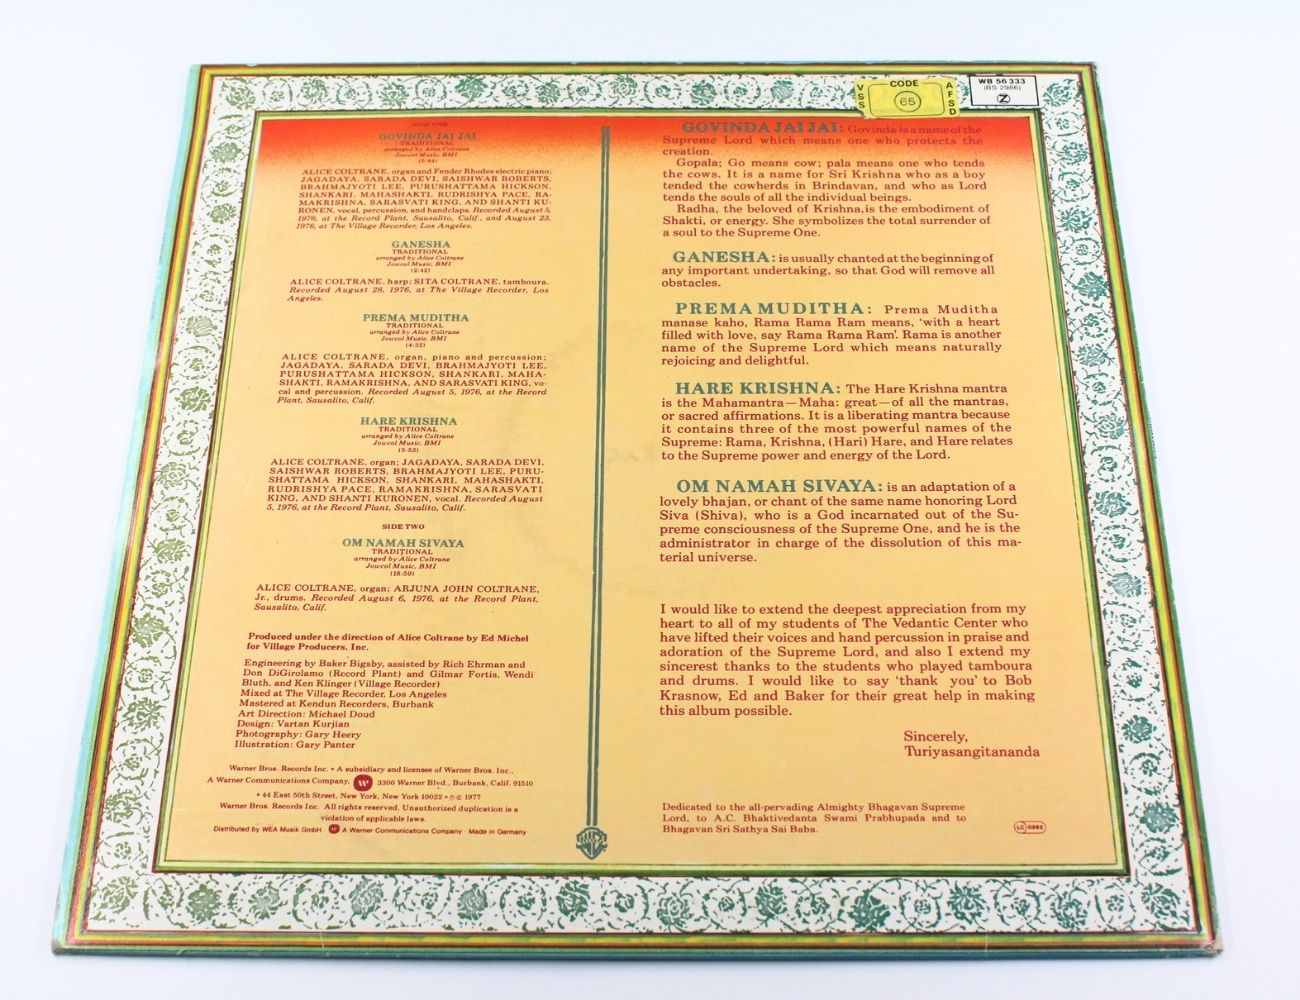 V
S
S
CODE
65
A
F
S
D
WB 56 333
(BS 2986)
Z
SIDE ONE
GOVINDA JAI JAI
TRADITIONAL
arranged by Alice Coltrane
Jowcol Music. BMI
(5:44)
ALICE COLTRANE, organ and Fender Rhodes electric piano;
JAGADAYA, SARADA DEVI, SAISHWAR ROBERTS,
BRAHMAJYOTI LEE, PURUSHATTAMA HICKSON,
SHANKARI, MAHASHAKTI, RUDRISHYA PACE, RA-
MAKRISHNA, SARASVATI KING, AND SHANTI KU-
RONEN, vocal, percussion, and handclaps. Recorded August 5,
1976, at the Record Plant, Sausalito, Calif., and August 23,
1976, at The Village Recorder, Los Angeles.
GANESHA
TRADITIONAL
arranged by Alice Coltrane
Jowcol Music. BMI
(2:42)
ALICE COLTRANE, harp; SITA COLTRANE, tamboura.
Recorded August 28, 1976, at The Village Recorder, Los
Angeles.
PREMA MUDITHA
TRADITIONAL
arranged by Alice Coltrane
Jowcol Music. BMI
(4:32)
ALICE COLTRANE, organ, piano and percussion;
JAGADAYA, SARADA DEVI, BRAHMAJYOTI LEE,
PURUSHATTAMA HICKSON, SHANKARI, MAHA-
SHAKTI, RAMAKRISHNA, AND SARASVATI KING, vo-
cal and percussion. Recorded August 5, 1976, at the Record
Plant, Sausalito, Calif.
HARE KRISHNA
TRADITIONAL
arranged by Alice Coltrane
Jowcol Music. BMI
(5:53)
ALICE COLTRANE, organ; JAGADAYA, SARADA DEVI,
SAISHWAR ROBERTS, BRAHMAJYOTI LEE, PURU-
SHATTAMA HICKSON, SHANKARI, MAHASHAKTI,
RUDRISHYA PACE, RAMAKRISHNA, SARASVATI
KING, AND SHANTI KURONEN, vocal. Recorded August
5, 1976, at the Record Plant, Sausalito, Calif.
SIDE TWO
OM NAMAH SIVAYA
TRADITIONAL
arranged by Alice Coltrane
Jowcol Music. BMI
(18:59)
ALICE COLTRANE, organ; ARJUNA JOHN COLTRANE,
Jr., drums. Recorded August 6, 1976, at the Record Plant,
Sausalito, Calif.
Produced under the direction of Alice Coltrane by Ed Michel
for Village Producers, Inc.
Engineering by Baker Bigsby, assisted by Rich Ehrman and
Don DiGirolamo (Record Plant) and Gilmar Fortis, Wendi
Bluth, and Ken Klinger (Village Recorder)
Mixed at The Village Recorder, Los Angeles
Mastered at Kendun Recorders, Burbank
Art Direction: Michael Doud
Design: Vartan Kurjian
Photography: Gary Heery
Illustration: Gary Panter
Warner Bros. Records Inc. • A subsidiary and licensee of Warner Bros. Inc.,
A Warner Communications Company, W 3300 Warner Blvd., Burbank, Calif. 91510
• 44 East 50th Street, New York, New York 10022 • ℗ © 1977
Warner Bros. Records Inc. All rights reserved. Unauthorized duplication is a
violation of applicable laws.
Distributed by WEA Musik GmbH · A Warner Communications Company · Made in Germany
GOVINDA JAI JAI: Govinda is a name of the
Supreme Lord which means one who protects the
creation.
Gopala; Go means cow; pala means one who tends
the cows. It is a name for Sri Krishna who as a boy
tended the cowherds in Brindavan, and who as Lord
tends the souls of all the individual beings.
Radha, the beloved of Krishna, is the embodiment of
Shakti, or energy. She symbolizes the total surrender of
a soul to the Supreme One.
GANESHA: is usually chanted at the beginning of
any important undertaking, so that God will remove all
obstacles.
PREMA MUDITHA: Prema Muditha
manase kaho, Rama Rama Ram means, ‘with a heart
filled with love, say Rama Rama Ram’. Rama is another
name of the Supreme Lord which means naturally
rejoicing and delightful.
HARE KRISHNA: The Hare Krishna mantra
is the Mahamantra—Maha: great—of all the mantras,
or sacred affirmations. It is a liberating mantra because
it contains three of the most powerful names of the
Supreme: Rama, Krishna, (Hari) Hare, and Hare relates
to the Supreme power and energy of the Lord.
OM NAMAH SIVAYA: is an adaptation of a
lovely bhajan, or chant of the same name honoring Lord
Siva (Shiva), who is a God incarnated out of the Su-
preme consciousness of the Supreme One, and he is the
administrator in charge of the dissolution of this ma-
terial universe.
I would like to extend the deepest appreciation from my
heart to all of my students of The Vedantic Center who
have lifted their voices and hand percussion in praise and
adoration of the Supreme Lord, and also I extend my
sincerest thanks to the students who played tamboura
and drums. I would like to say ‘thank you’ to Bob
Krasnow, Ed and Baker for their great help in making
this album possible.
Sincerely,
Turiyasangitananda
Dedicated to the all-pervading Almighty Bhagavan Supreme
Lord, to A.C. Bhaktivedanta Swami Prabhupada and to
Bhagavan Sri Sathya Sai Baba.
LC 0392